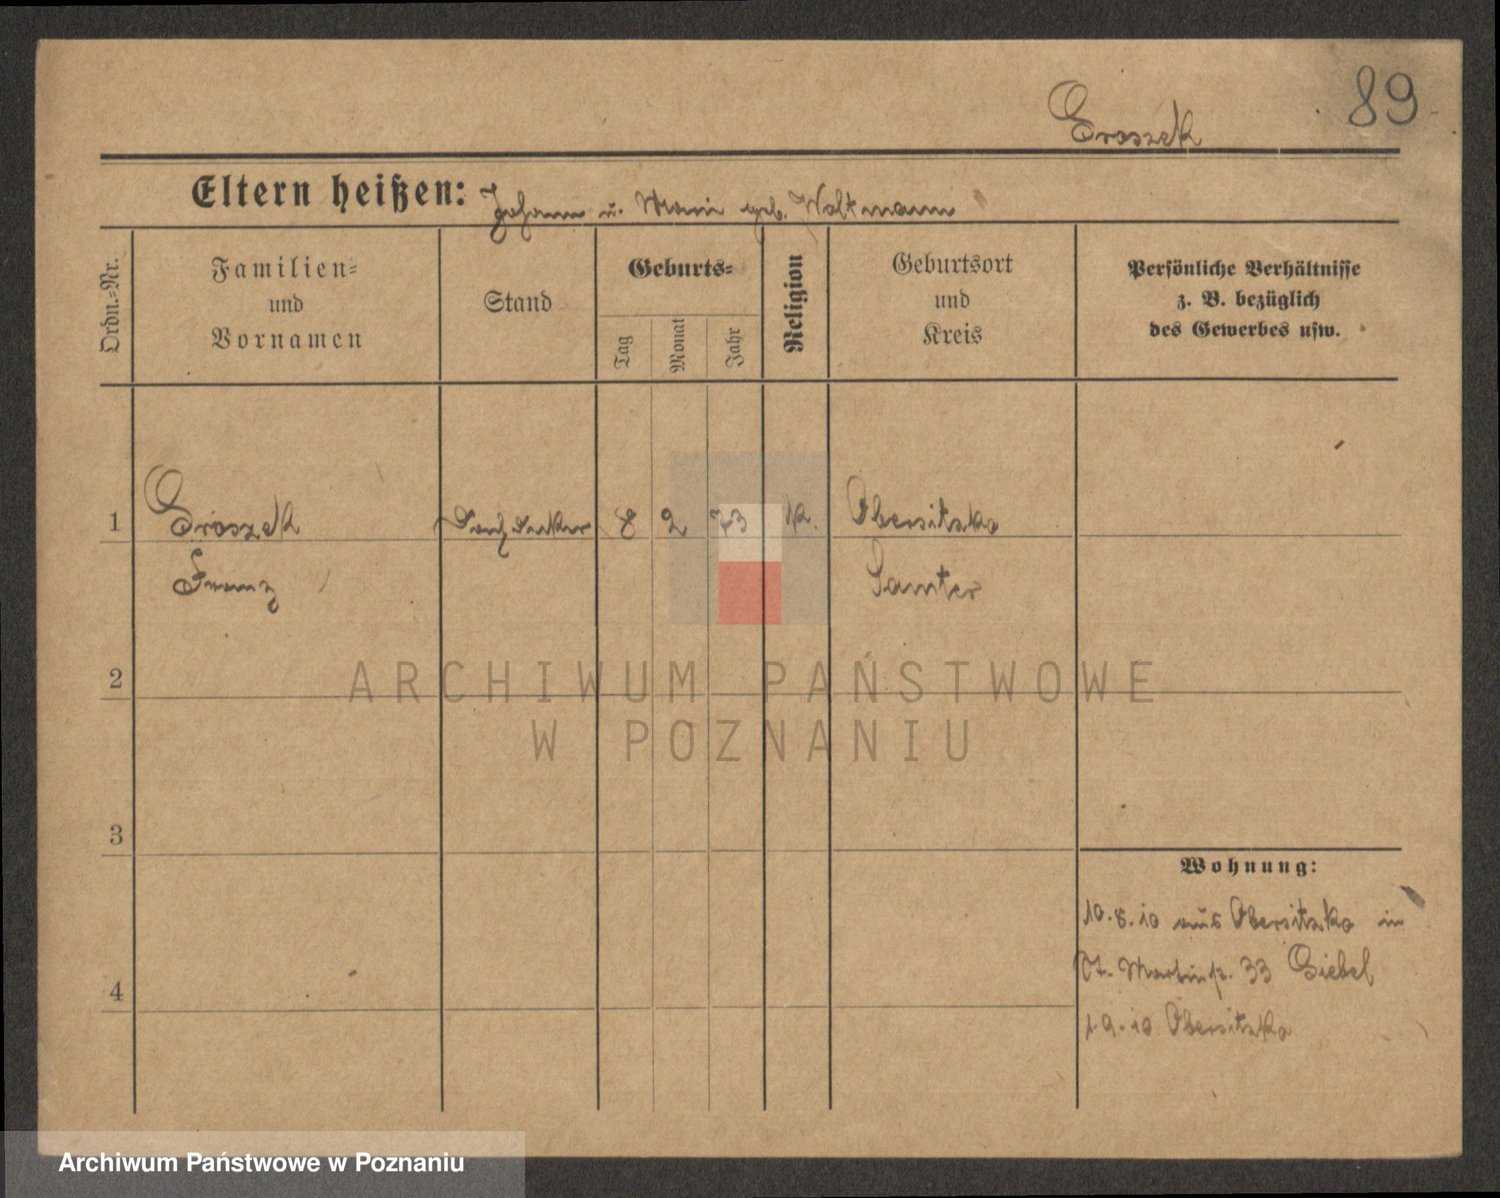 89
Groszek
Eltern heißen: Johann u. Marie geb. Woltmann
Ordn.-Nr.
Familien-
und
Vornamen
Stand
Geburts-
Tag
Monat
Jahr
Religion
Geburtsort
und
Kreis
Persönliche Verhältnisse
z. B. bezüglich
des Gewerbes usw.
1 Groszek Dachdecker 8 2 73 k. Obersitzko
Franz Samter
2
3
4
Wohnung:
10.8.10 aus Obersitzko in
St. Martinstr. 33 Giebel
1.9.10 Obersitzko
ARCHIWUM PAŃSTWOWE
W POZNANIU
Archiwum Państwowe w Poznaniu